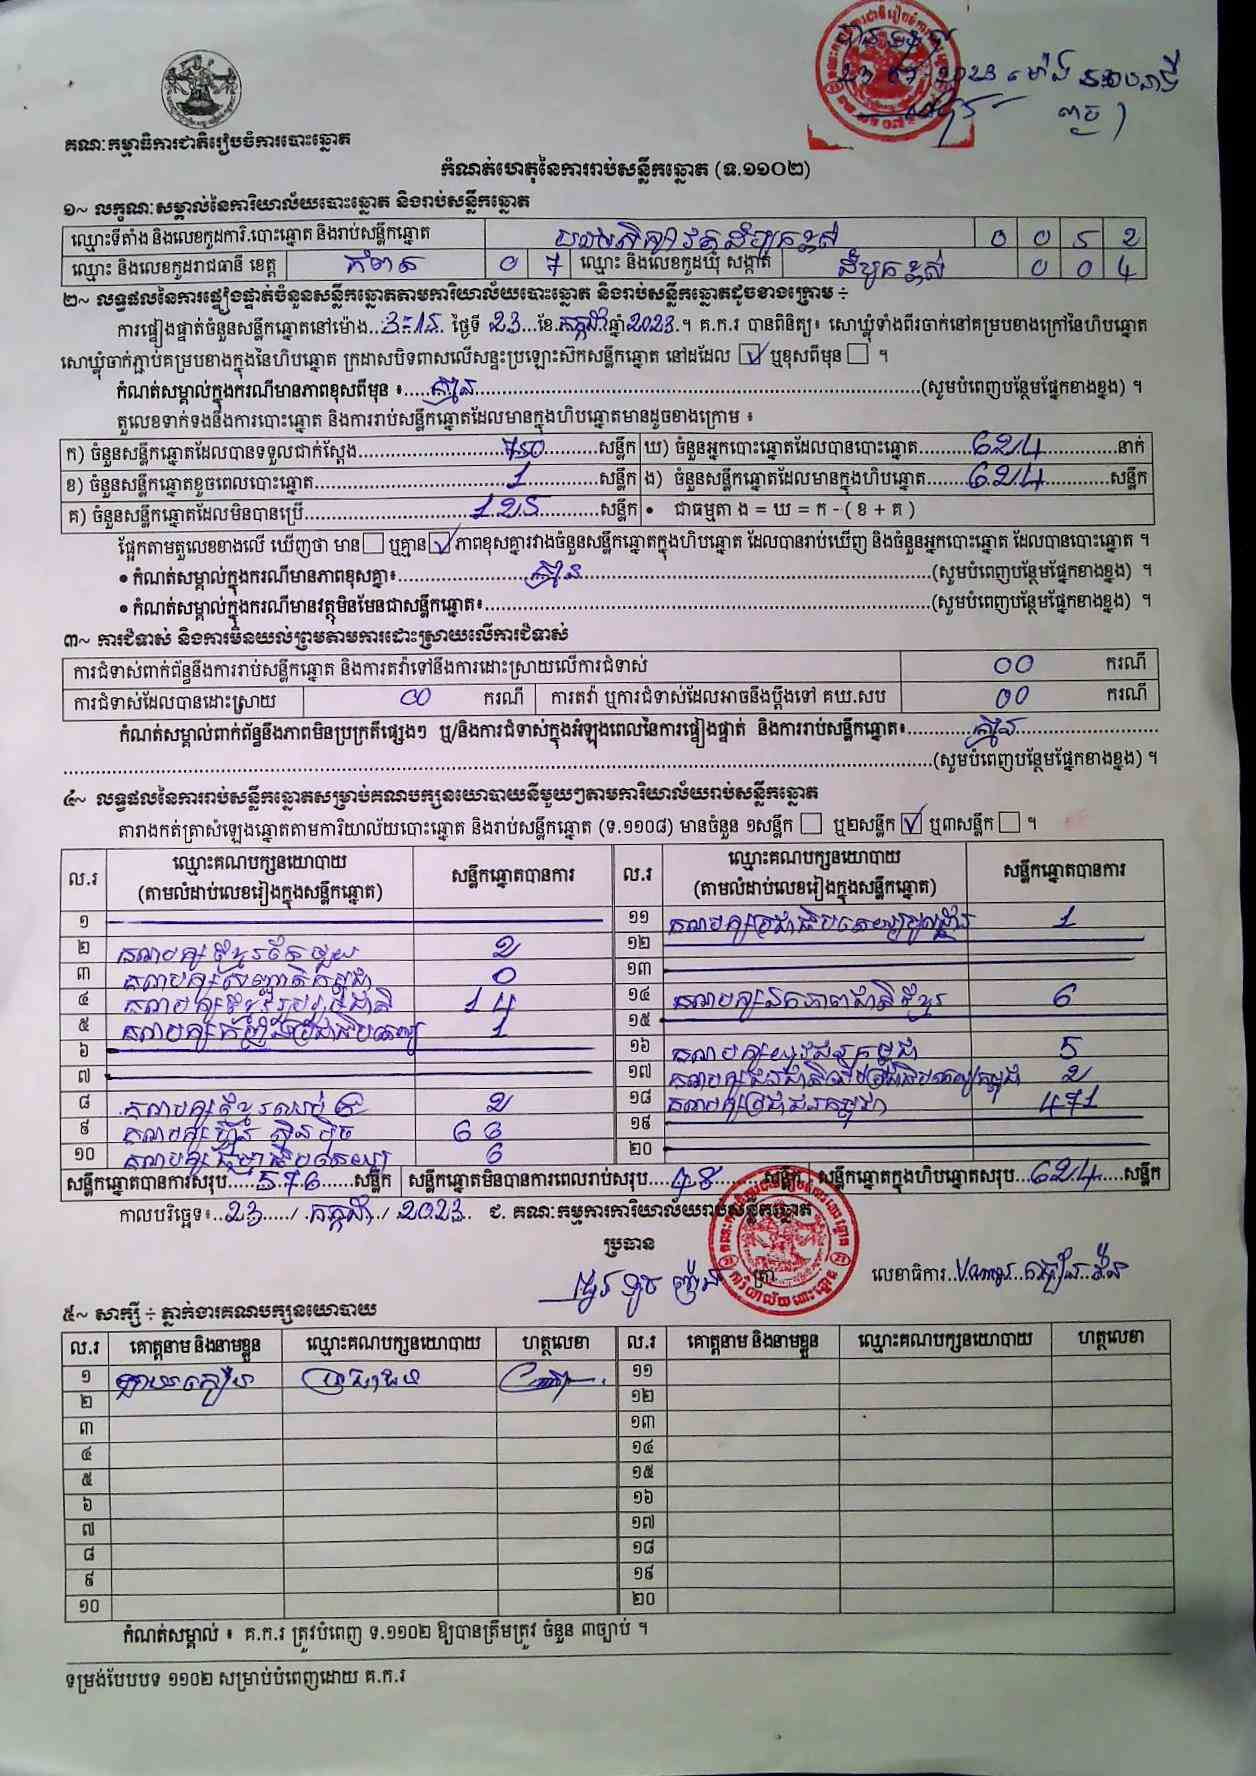 គណៈកម្មាធិការជាតិរៀបចំការបោះឆ្នោត
កំណត់ហេតុនៃការរាប់សន្លឹកឆ្នោត (ទ.១១០២)
១~ លក្ខណៈសម្គាល់នៃការិយាល័យបោះឆ្នោត និងរាប់សន្លឹកឆ្នោត
ឈ្មោះទីតាំង និងលេខកូដការិ.បោះឆ្នោត និងរាប់សន្លឹកឆ្នោត 0 0 5 2
ឈ្មោះ និងលេខកូដរាជធានី ខេត្ត កំពត 0 7 ឈ្មោះ និងលេខកូដឃុំ សង្កាត់ 0 0 4
២~ លទ្ធផលនៃការផ្ទៀងផ្ទាត់ចំនួនសន្លឹកឆ្នោតតាមការិយាល័យបោះឆ្នោត និងរាប់សន្លឹកឆ្នោតដូចខាងក្រោម ÷
ការផ្ទៀងផ្ទាត់ចំនួនសន្លឹកឆ្នោតនៅម៉ោង 3:15 ថ្ងៃទី 23 ខែ កក្កដា ឆ្នាំ 2023 ។ គ.ក.រ បានពិនិត្យ៖ សោឃ្លុំទាំងពីរចាក់នៅគម្របខាងក្រៅនៃហិបឆ្នោត
សោឃ្លុំចាក់ភ្ជាប់គម្របខាងក្នុងនៃហិបឆ្នោត ក្រដាសបិទពាសលើសន្ទះប្រឡោះស៊កសន្លឹកឆ្នោត នៅដដែល ✓ ឬខុសពីមុន ។
កំណត់សម្គាល់ក្នុងករណីមានភាពខុសពីមុន ៖ គ្មាន (សូមបំពេញបន្ថែមផ្នែកខាងខ្នង) ។
តួលេខទាក់ទងនឹងការបោះឆ្នោត និងការរាប់សន្លឹកឆ្នោតដែលមានក្នុងហិបឆ្នោតមានដូចខាងក្រោម ៖
ក) ចំនួនសន្លឹកឆ្នោតដែលបានទទួលជាក់ស្តែង 750 សន្លឹក ឃ) ចំនួនអ្នកបោះឆ្នោតដែលបានបោះឆ្នោត 624 នាក់
ខ) ចំនួនសន្លឹកឆ្នោតខូចពេលបោះឆ្នោត 1 សន្លឹក ង) ចំនួនសន្លឹកឆ្នោតដែលមានក្នុងហិបឆ្នោត 624 សន្លឹក
គ) ចំនួនសន្លឹកឆ្នោតដែលមិនបានប្រើ 125 សន្លឹក • ជាធម្មតា ង = ឃ = ក - ( ខ + គ )
ផ្អែកតាមតួលេខខាងលើ ឃើញថា មាន ឬគ្មាន ✓ ភាពខុសគ្នារវាងចំនួនសន្លឹកឆ្នោតក្នុងហិបឆ្នោត ដែលបានរាប់ឃើញ និងចំនួនអ្នកបោះឆ្នោត ដែលបានបោះឆ្នោត ។
• កំណត់សម្គាល់ក្នុងករណីមានភាពខុសគ្នា៖ គ្មាន (សូមបំពេញបន្ថែមផ្នែកខាងខ្នង) ។
• កំណត់សម្គាល់ក្នុងករណីមានវត្ថុមិនមែនជាសន្លឹកឆ្នោត៖ (សូមបំពេញបន្ថែមផ្នែកខាងខ្នង) ។
៣~ ការជំទាស់ និងការមិនយល់ព្រមតាមការដោះស្រាយលើការជំទាស់
ការជំទាស់ពាក់ព័ន្ធនឹងការរាប់សន្លឹកឆ្នោត និងការតវ៉ាទៅនឹងការដោះស្រាយលើការជំទាស់ 00 ករណី
ការជំទាស់ដែលបានដោះស្រាយ 00 ករណី ការតវ៉ា ឬការជំទាស់ដែលអាចនឹងប្តឹងទៅ គឃ.សប 00 ករណី
កំណត់សម្គាល់ពាក់ព័ន្ធនឹងភាពមិនប្រក្រតីផ្សេងៗ ឬ/និងការជំទាស់ក្នុងអំឡុងពេលនៃការផ្ទៀងផ្ទាត់ និងការរាប់សន្លឹកឆ្នោត៖ គ្មាន
(សូមបំពេញបន្ថែមផ្នែកខាងខ្នង) ។
៤~ លទ្ធផលនៃការរាប់សន្លឹកឆ្នោតសម្រាប់គណបក្សនយោបាយនីមួយៗតាមការិយាល័យរាប់សន្លឹកឆ្នោត
តារាងកត់ត្រាសំឡេងឆ្នោតតាមការិយាល័យបោះឆ្នោត និងរាប់សន្លឹកឆ្នោត (ទ.១១០៨) មានចំនួន ១សន្លឹក ឬ២សន្លឹក ✓ ឬ៣សន្លឹក ។
ល.រ ឈ្មោះគណបក្សនយោបាយ (តាមលំដាប់លេខរៀងក្នុងសន្លឹកឆ្នោត) សន្លឹកឆ្នោតបានការ ល.រ ឈ្មោះគណបក្សនយោបាយ (តាមលំដាប់លេខរៀងក្នុងសន្លឹកឆ្នោត) សន្លឹកឆ្នោតបានការ
១ ១១ 1
២ គណបក្សខ្មែរតែមួយ 2 ១២
៣ 0 ១៣
៤ គណបក្សខ្មែររួបរួមជាតិ 14 ១៤ គណបក្សឯកភាពជាតិខ្មែរ 6
៥ 1 ១៥
៦ ១៦ គណបក្សយុវជនកម្ពុជា 5
៧ ១៧ 2
៨ 2 ១៨ គណបក្សប្រជាជនកម្ពុជា 471
៩ គណបក្សហ៊្វុនស៊ិនប៉ិច 66 ១៩
១០ 6 ២០
សន្លឹកឆ្នោតបានការសរុប 576 សន្លឹក សន្លឹកឆ្នោតមិនបានការពេលរាប់សរុប 48 សន្លឹក សន្លឹកឆ្នោតក្នុងហិបឆ្នោតសរុប 624 សន្លឹក
កាលបរិច្ឆេទ៖ 23 / កក្កដា / 2023 ជ. គណៈកម្មការការិយាល័យរាប់សន្លឹកឆ្នោត
ប្រធាន
ត្រា លេខាធិការ
៥~ សាក្សី ÷ ភ្នាក់ងារគណបក្សនយោបាយ
ល.រ គោត្តនាម និងនាមខ្លួន ឈ្មោះគណបក្សនយោបាយ ហត្ថលេខា ល.រ គោត្តនាម និងនាមខ្លួន ឈ្មោះគណបក្សនយោបាយ ហត្ថលេខា
១ ប្រជាជន ១១
២ ១២
៣ ១៣
៤ ១៤
៥ ១៥
៦ ១៦
៧ ១៧
៨ ១៨
៩ ១៩
១០ ២០
កំណត់សម្គាល់ ៖ គ.ក.រ ត្រូវបំពេញ ទ.១១០២ ឱ្យបានត្រឹមត្រូវ ចំនួន ៣ច្បាប់ ។
ទម្រង់បែបបទ ១១០២ សម្រាប់បំពេញដោយ គ.ក.រ